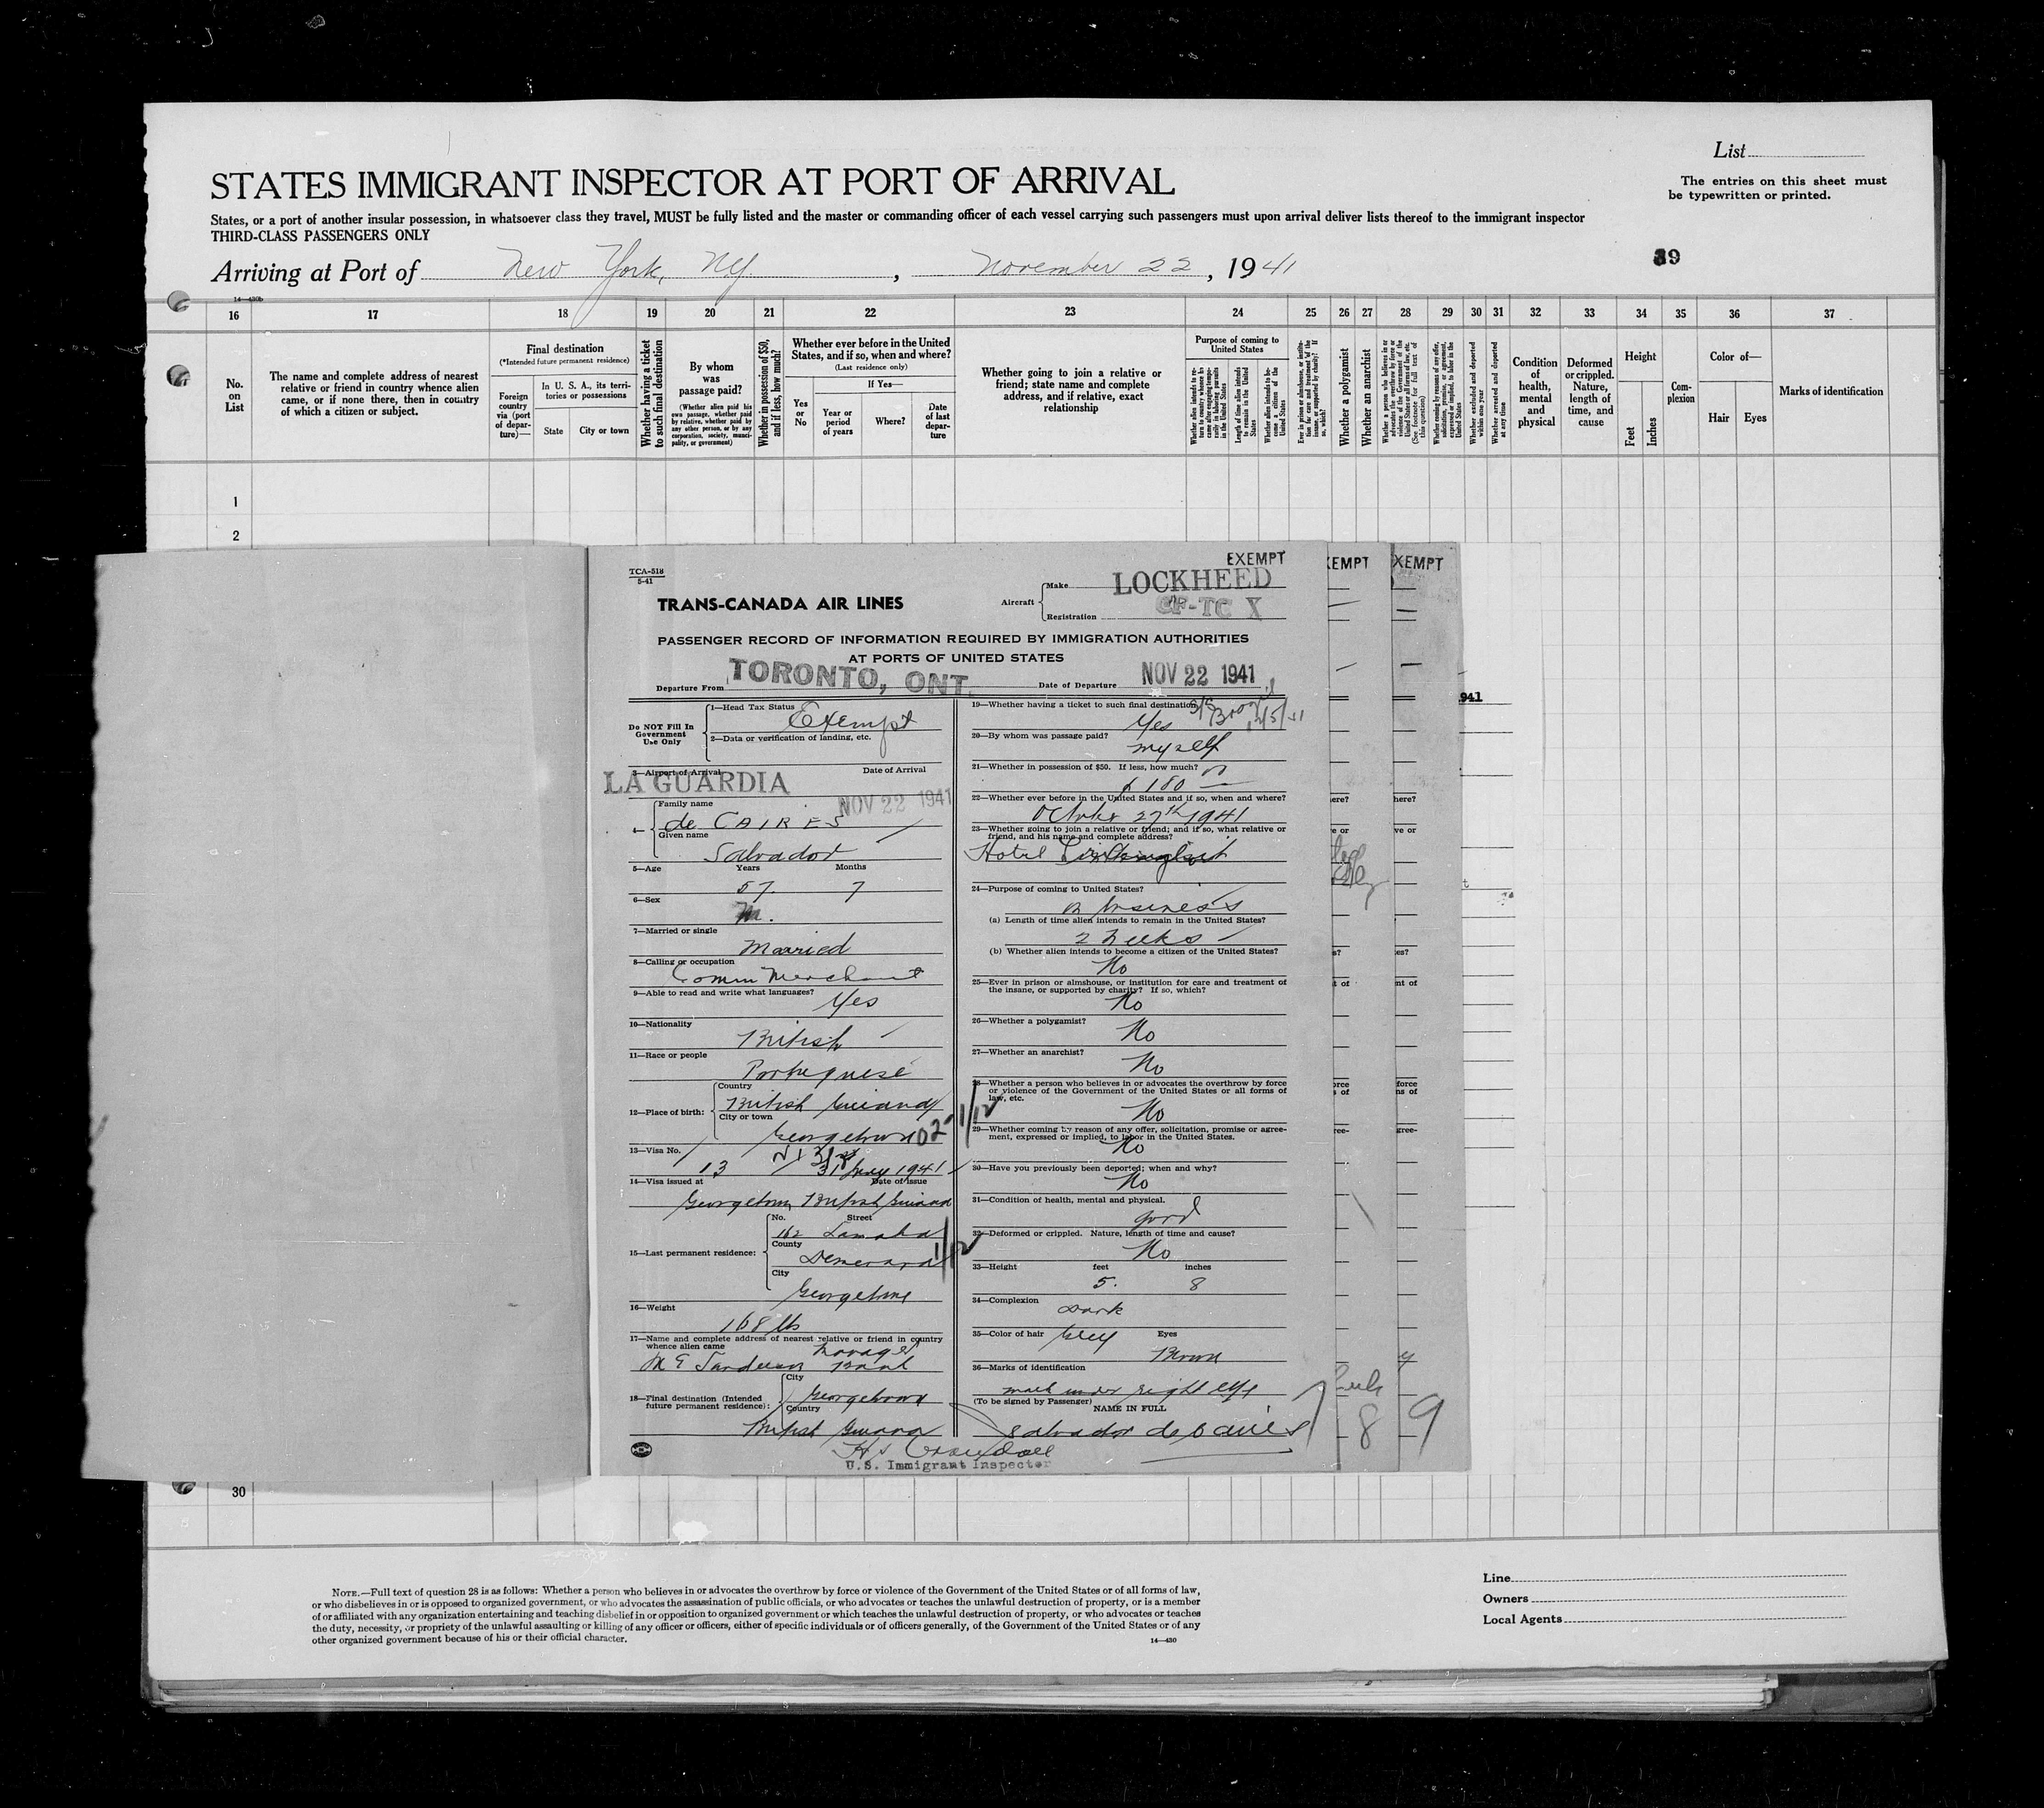 List
The entries on this sheet must
be typewritten or printed.
STATES IMMIGRANT INSPECTOR AT PORT OF ARRIVAL
States, or a port of another insular possession, in whatsoever class they travel, MUST be fully listed and the master or commanding officer of each vessel carrying such passengers must upon arrival deliver lists thereof to the immigrant inspector
THIRD-CLASS PASSENGERS ONLY
Arriving at Port of New York, NY. , November 22, 1941
39
14—430b
16 17 18 19 20 21 22 23 24 25 26 27 28 29 30 31 32 33 34 35 36 37
No.
on
List
The name and complete address of nearest
relative or friend in country whence alien
came, or if none there, then in country
of which a citizen or subject.
Final destination
(*Intended future permanent residence)
Foreign
country
via (port
of depar-
ture)—
In U. S. A., its terri-
tories or possessions
State
City or town
Whether having a ticket
to such final destination
By whom
was
passage paid?
(Whether alien paid his
own passage, whether paid
by relative, whether paid by
any other person, or by any
corporation, society, munici-
pality, or government)
Whether in possession of $50,
and if less, how much?
Whether ever before in the United
States, and if so, when and where?
(Last residence only)
Yes
or
No
If Yes—
Year or
period
of years
Where?
Date
of last
depar-
ture
Whether going to join a relative or
friend; state name and complete
address, and if relative, exact
relationship
Purpose of coming to
United States
Whether alien intends to re-
turn to country whence he
came after engaging tempo-
rarily in laboring pursuits
in the United States
Length of time alien intends
to remain in the United
States
Whether alien intends to be-
come a citizen of the
United States
Ever in prison or almshouse, or institu-
tion for care and treatment of the
insane, or supported by charity? If
so, which?
Whether a polygamist
Whether an anarchist
Whether a person who believes in or
advocates the overthrow by force or
violence of the Government of the
United States or all forms of law, etc.
(See footnote for full text of
this question)
Whether coming by reasons of any offer,
solicitation, promise, or agreement,
expressed or implied, to labor in the
United States
Whether excluded and deported
within one year
Whether arrested and deported
at any time
Condition
of
health,
mental
and
physical
Deformed
or crippled.
Nature,
length of
time, and
cause
Height
Feet
Inches
Com-
plexion
Color of—
Hair
Eyes
Marks of identification
1
2
TCA-518
5-41
EXEMPT
TRANS-CANADA AIR LINES
Aircraft
Make LOCKHEED
Registration CF-TC X
PASSENGER RECORD OF INFORMATION REQUIRED BY IMMIGRATION AUTHORITIES
AT PORTS OF UNITED STATES
Departure From TORONTO, ONT.
Date of Departure NOV 22 1941
Do NOT Fill In
Government
Use Only
1—Head Tax Status Exempt
2—Data or verification of landing, etc.
3—Airport of Arrival Date of Arrival
LA GUARDIA NOV 22 1941
4— Family name
de CAIRES
Given name
Salvador
5—Age Years Months
57 7
6—Sex
M.
7—Married or single
Married
8—Calling or occupation
Comm Merchant
9—Able to read and write what languages?
Yes
10—Nationality
British
11—Race or people
Portuguese
12—Place of birth: Country
British Guiana
City or town
Georgetown
13—Visa No.
13 31st May 1941
14—Visa issued at Date of Issue
Georgetown, British Guiana
15—Last permanent residence:
No. Street
162 Lamaha
County
Demerara
City
Georgetown
16—Weight
168 lbs
17—Name and complete address of nearest relative or friend in country
whence alien came
Manager
18—Final destination (Intended
future permanent residence):
City
Georgetown
Country
British Guiana
19—Whether having a ticket to such final destination
Yes
20—By whom was passage paid?
myself
21—Whether in possession of $50. If less, how much?
$ 180
22—Whether ever before in the United States and if so, when and where?
October 27th 1941
23—Whether going to join a relative or friend; and if so, what relative or
friend, and his name and complete address?
Hotel
24—Purpose of coming to United States?
Business
(a) Length of time alien intends to remain in the United States?
2 Weeks
(b) Whether alien intends to become a citizen of the United States?
No
25—Ever in prison or almshouse, or institution for care and treatment of
the insane, or supported by charity? If so, which?
No
26—Whether a polygamist?
No
27—Whether an anarchist?
No
28—Whether a person who believes in or advocates the overthrow by force
or violence of the Government of the United States or all forms of
law, etc.
No
29—Whether coming by reason of any offer, solicitation, promise or agree-
ment, expressed or implied, to labor in the United States.
No
30—Have you previously been deported; when and why?
No
31—Condition of health, mental and physical.
good
32—Deformed or crippled. Nature, length of time and cause?
No
33—Height feet inches
5. 8
34—Complexion
Dark
35—Color of hair Grey Eyes
Brown
36—Marks of identification
mark under right eye
(To be signed by Passenger)
NAME IN FULL
Salvador de Caires
U.S. Immigrant Inspector
XEMPT
XEMPT
941
8
9
30
NOTE.—Full text of question 28 is as follows: Whether a person who believes in or advocates the overthrow by force or violence of the Government of the United States or of all forms of law,
or who disbelieves in or is opposed to organized government, or who advocates the assassination of public officials, or who advocates or teaches the unlawful destruction of property, or is a member
of or affiliated with any organization entertaining and teaching disbelief in or opposition to organized government or which teaches the unlawful destruction of property, or who advocates or teaches
the duty, necessity, or propriety of the unlawful assaulting or killing of any officer or officers, either of specific individuals or of officers generally, of the Government of the United States or of any
other organized government because of his or their official character.
14—430
Line
Owners
Local Agents